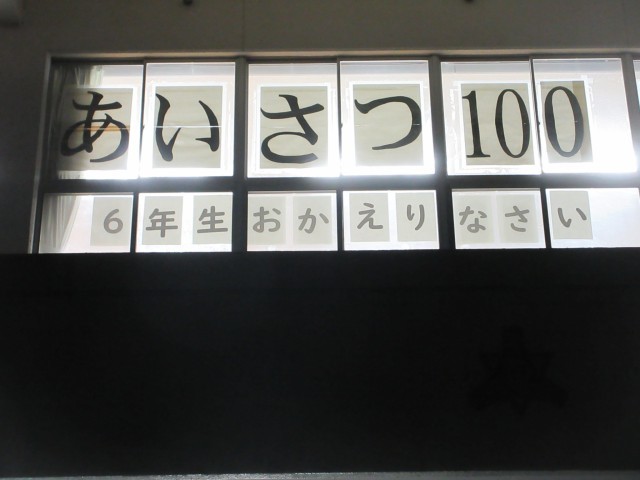 あいさつ100
6年生おかえりなさい